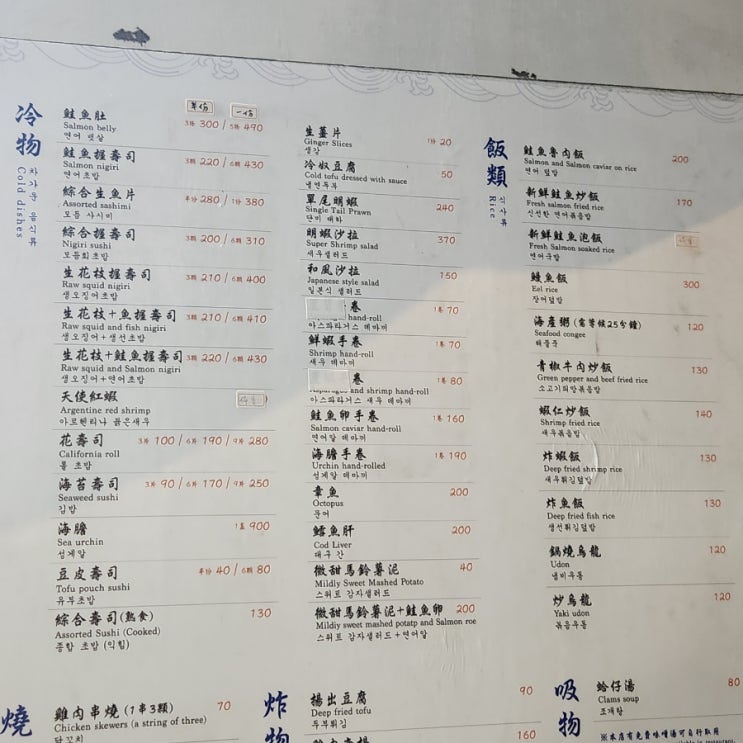 冷物
차가운 음식류
Cold dishes
半份 一份
鮭魚肚 3片 300 / 5片 490
Salmon belly
연어 뱃살
鮭魚握壽司 3顆 220 / 6顆 430
Salmon nigiri
연어초밥
綜合生魚片 半份 280 / 1份 380
Assorted sashimi
모듬 사시미
綜合握壽司 3顆 200 / 6顆 310
Nigiri sushi
모듬회초밥
生花枝握壽司 3顆 210 / 6顆 400
Raw squid nigiri
생오징어초밥
生花枝+魚握壽司 3顆 210 / 6顆 410
Raw squid and fish nigiri
생오징어+생선초밥
生花枝+鮭魚握壽司 3顆 220 / 6顆 430
Raw squid and Salmon nigiri
생오징어+연어초밥
天使紅蝦
Argentine red shrimp
아르헨티나 붉은새우
花壽司 3片 100 / 6片 190 / 9片 280
California roll
롤 초밥
海苔壽司 3片 90 / 6片 170 / 9片 250
Seaweed sushi
김밥
海膽 1盒 900
Sea urchin
성게알
豆皮壽司 半份 40 / 6顆 80
Tofu pouch sushi
유부초밥
綜合壽司(熟食) 130
Assorted Sushi (Cooked)
종합 초밥 (익힘)
生薑片 1份 20
Ginger Slices
생강
冷奴豆腐 50
Cold tofu dressed with sauce
냉연두부
單尾明蝦 240
Single Tail Prawn
단미 대하
明蝦沙拉 370
Super Shrimp salad
새우샐러드
和風沙拉 150
Japanese style salad
일본식 샐러드
卷 1卷 70
hand-roll
아스파라거스 데마끼
鮮蝦手卷 1卷 70
Shrimp hand-roll
새우 데마끼
卷 1卷 80
Asparagus and shrimp hand-roll
아스파라거스 새우 데마끼
鮭魚卵手卷 1卷 160
Salmon caviar hand-roll
연어알 데마끼
海膽手卷 1卷 190
Urchin hand-rolled
성게알 데마끼
章魚 200
Octopus
문어
鱈魚肝 200
Cod Liver
대구 간
微甜馬鈴薯泥 40
Mildly Sweet Mashed Potato
스위트 감자샐러드
微甜馬鈴薯泥+鮭魚卵 200
Mildiy sweet mashed potatp and Salmon roe
스위트 감자샐러드+연어알
飯類
식사류
Rice
鮭魚魯肉飯 200
Salmon and Salmon caviar on rice
연어 덮밥
新鮮鮭魚炒飯 170
Fresh salmon fried rice
신선한 연어볶음밥
新鮮鮭魚泡飯
Fresh Salmon soaked rice
연어국밥
鰻魚飯 300
Eel rice
장어덮밥
海產粥(需等候25分鐘) 120
Seafood congee
해물죽
青椒牛肉炒飯 130
Green pepper and beef fried rice
소고기피망볶음밥
蝦仁炒飯 140
Shrimp fried rice
새우볶음밥
炸蝦飯 130
Deep fried shrimp rice
새우튀김덮밥
炸魚飯 130
Deep fried fish rice
생선튀김덮밥
鍋燒烏龍 120
Udon
냄비우동
炒烏龍 120
Yaki udon
볶음우동
燒
雞肉串燒(1串3顆) 70
Chicken skewers (a string of three)
닭꼬치
炸物
揚出豆腐 90
Deep fried tofu
두부튀김
160
吸物
蛤仔湯 80
Clams soup
조개탕
※本店有免費味噌湯可自行取用